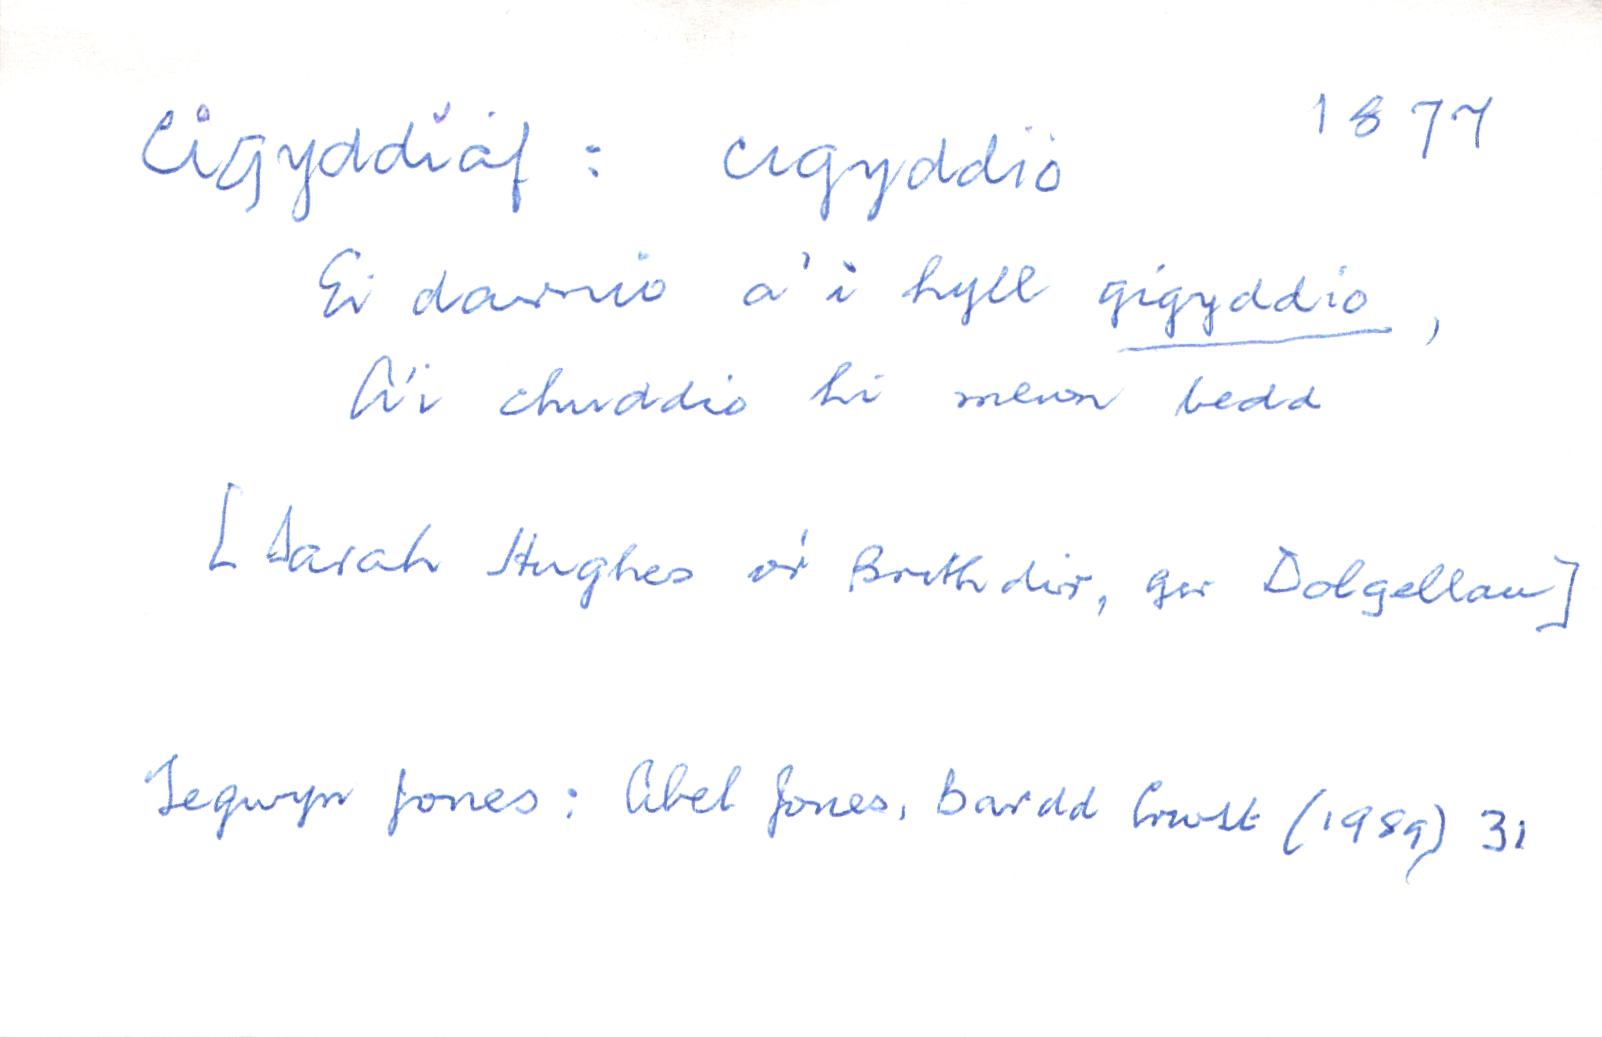 Cigyddiaf: cigyddio 1877
Ei darnio a'i hyll gigyddio,
A'i chuddio hi mewn bedd
[Sarah Hughes o'r Brithdir, ger Dolgellau]
Tegwyn Jones: Abel Jones, Bardd Crwst (1989) 31